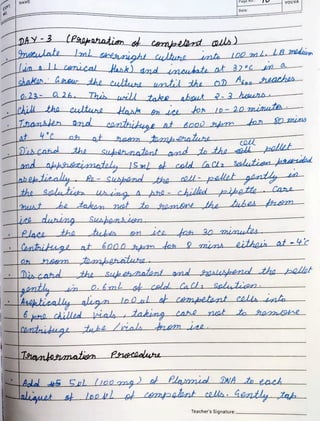 NAME
Page No.
Date:
YOUVA
DAY - 3 (Preparation of competent cells)
Inoculate 1mL overnight culture into 100 mL LB medium
(in a 1L conical flask) and incubate at 37°C in a
shaker. Grow the culture until the OD A600 reaches
0.23 - 0.26. This will take about 2-3 hours.
Chill the culture flask on ice for 10-20 minutes.
Transfer and centrifuge at 6000 rpm for 80 mins
at 4°C or at room temperature
Discard the supernatent and to the cell pellet
and approximately 15 ml of cold CaCl2 solution provided
aseptically. Re-suspend the cell-pellet gently in
the solution using a pre-chilled pipette. Care
must be taken not to remove the tubes from
ice during suspension.
Place the tubes on ice for 30 minutes.
Centrifuge at 6000 rpm for 8 mins either at -4°C
or room temperature.
Discard the supernatent and resuspend the pellet
gently in 0.6ml of cold CaCl2 solution.
Aseptically align 100 ul of competent cells into
6 pre chilled vials, taking care not to remove
centrifuge tube / vials from ice.
Transformation Procedure
Add 5ul (100mg) of Plasmid DNA to each
aliquet of 100 ul of competent cells. Gently tap
Teacher's Signature: